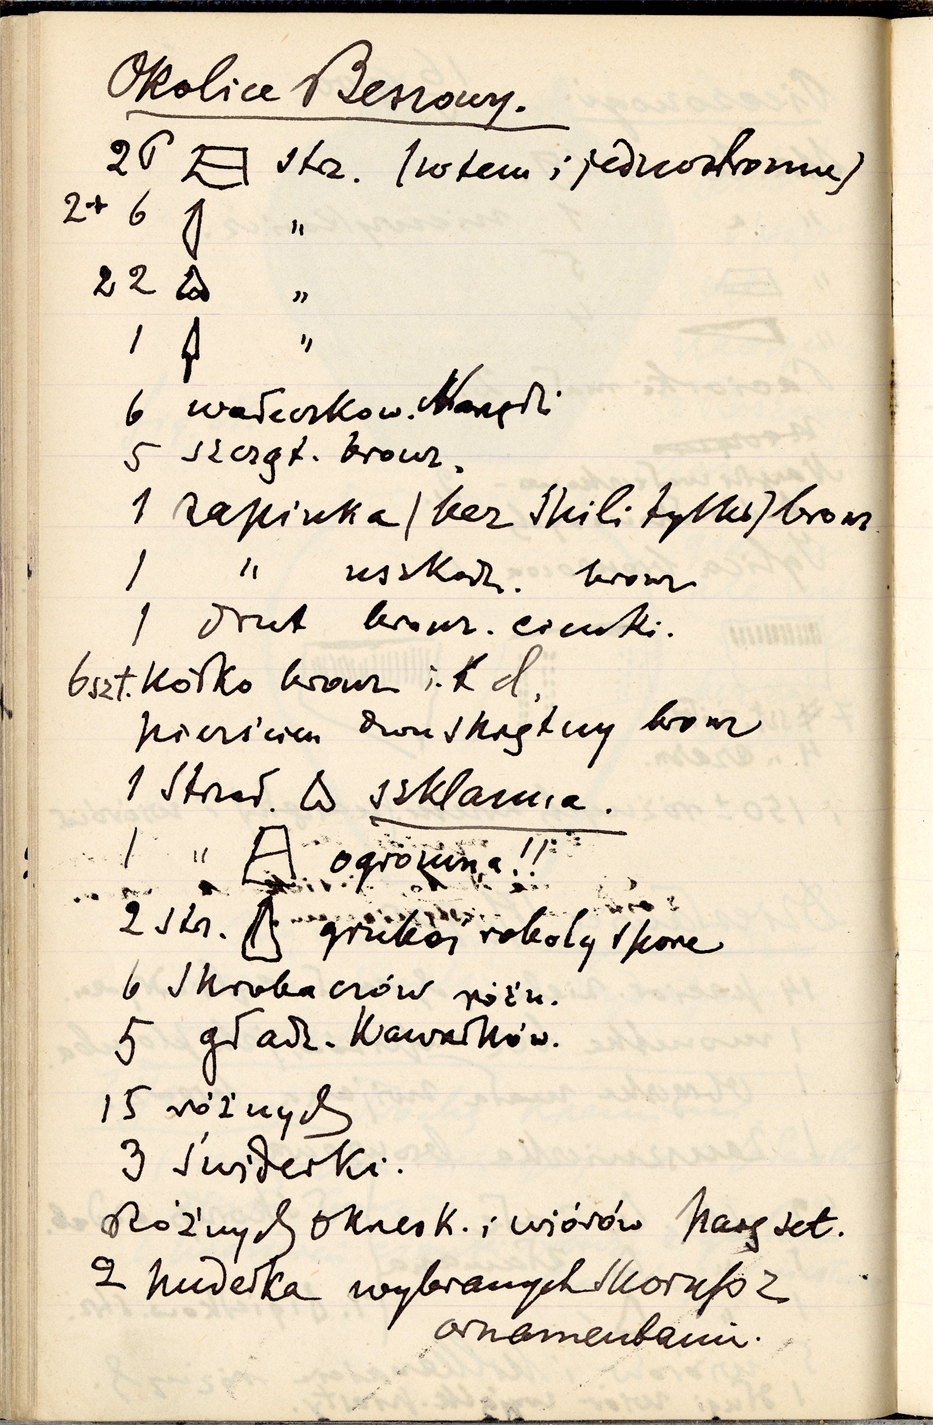 Okolice Beszowy.
26 str. (w tem i jednostronne)
2+ 6 "
22 "
1 "
6 wałeczkow.
5 szczgł. bronz.
1 zapinka (bez śpili tylko) bronz
1 " uszkodz. bronz
1 drut bronz. cienki.
6 szt. kółko bronz i. t d.
pierścien dwuskrętny bronz
1 Strzał. szklanna.
1 " ogromna!!
2 str. grubej roboty spore
6 skrobaczów różn.
5 gładz. kawałków.
15 różnych
3 świderki.
Różnych okrzesk. i wiórów parę set.
2 pudełka wybranych skorup z
ornamentami.